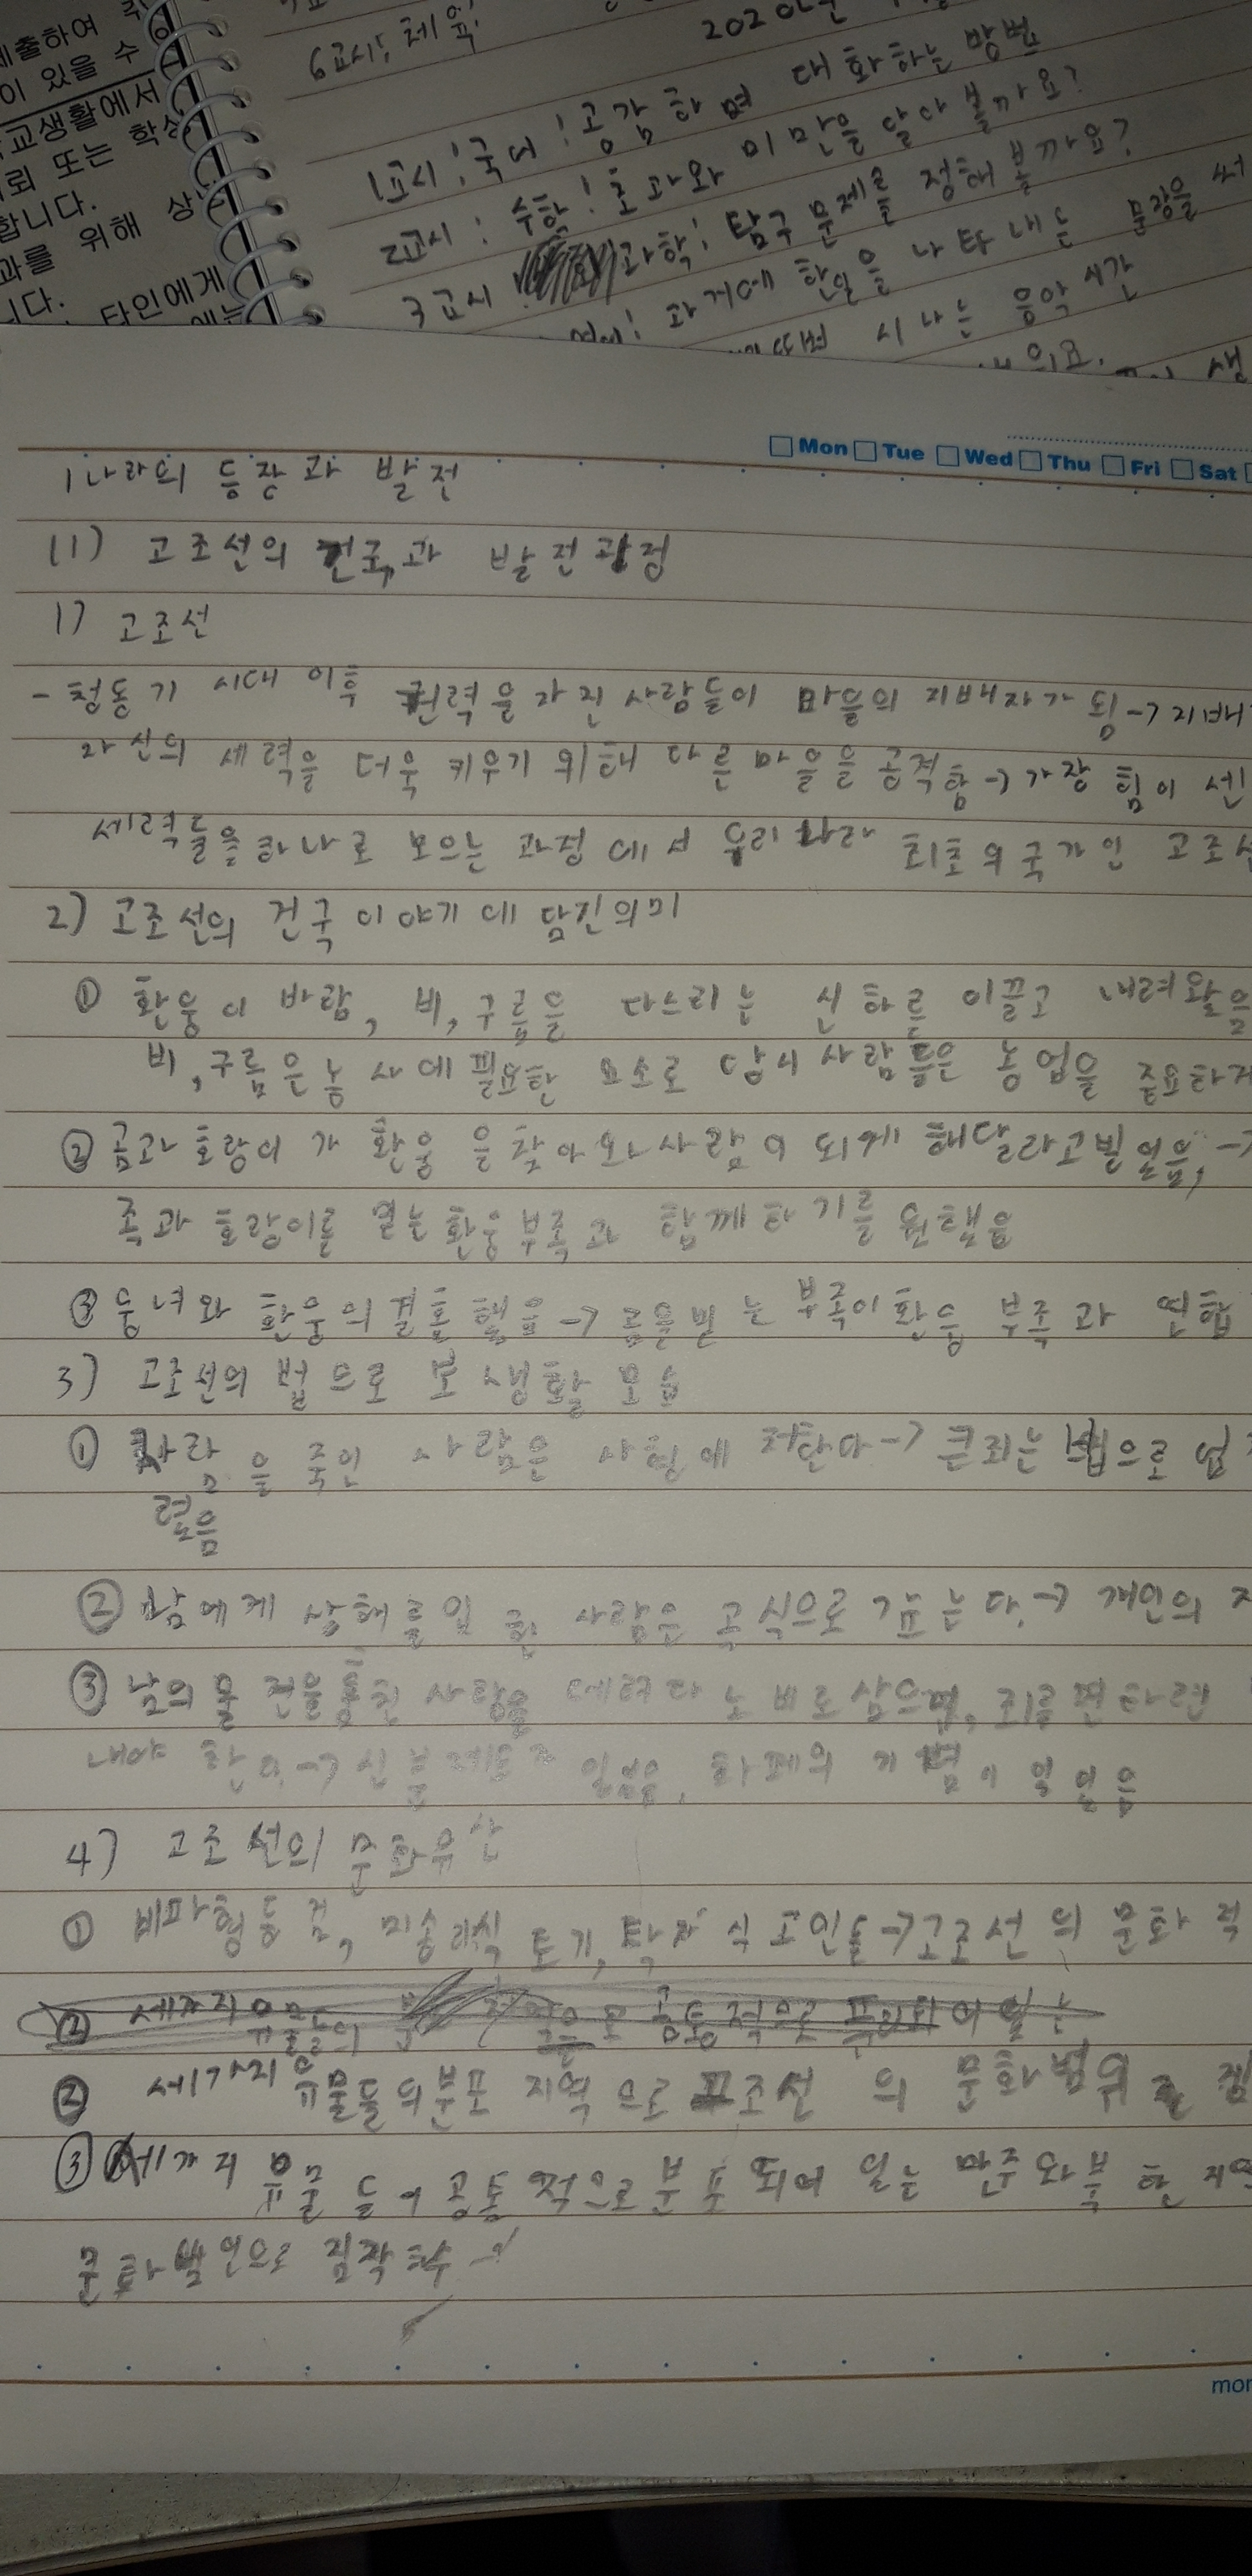 제출하여
이 있을 수
교생활에서
뢰 또는 학생
합니다.
과를 위해 상
니다.
타인에게
에는
6교시: 체육
1교시: 국어: 공감하며 대화하는 방법
2교시: 수학: 초과와 미만을 알아 볼까요?
3교시 과학: 탐구 문제를 정해 볼까요?
과거에 한일을 나타내는 문장을 써
시나는 음악 시간
Mon Tue Wed Thu Fri Sat
1 나라의 등장과 발전
(1) 고조선의 건국과 발전 과정
1) 고조선
- 청동기 시대 이후 권력을 가진 사람들이 마을의 지배자가 됨→지배
자신의 세력을 더욱 키우기 위해 다른 마을을 공격함→가장 힘이 센
세력들을 하나로 모으는 과정에서 우리나라 최초의 국가인 고조선
2) 고조선의 건국 이야기에 담긴의미
① 환웅이 바람, 비, 구름을 다스리는 신하를 이끌고 내려왔음
비, 구름은 농사에 필요한 요소로 당시 사람들은 농업을 중요하게
② 곰과 호랑이가 환웅을 찾아와 사람이 되게 해달라고 빌었음, →
족과 호랑이를 믿는 환웅부족과 함께하기를 원했음
③ 웅녀와 환웅의 결혼했음→ 곰을믿는 부족이 환웅 부족과 연합
3) 고조선의 법으로 본 생활 모습
① 사람을 죽인 사람은 사형에 처한다→ 큰죄는 법으로 엄
렸음
② 남에게 상해를 입힌 사람은 곡식으로 갚는다.→ 개인의 재
③ 남의 물건을 훔친 사람을 데려다 노비로 삼으며, 죄를 면하려면
내야 한다.→신분제도가 있었음, 화폐의 개념이 있었음
4) 고조선의 문화유산
① 비파형동검, 미송리식 토기, 탁자식 고인돌→고조선의 문화적
② 세가지 유물들의 공통적으로
② 세가지 유물들의 분포 지역으로 고조선의 문화범위를 짐
③ 세가지 유물들이 공통적으로 분포되어 있는 만주와 북한 지역
문화범위으로 짐작할수